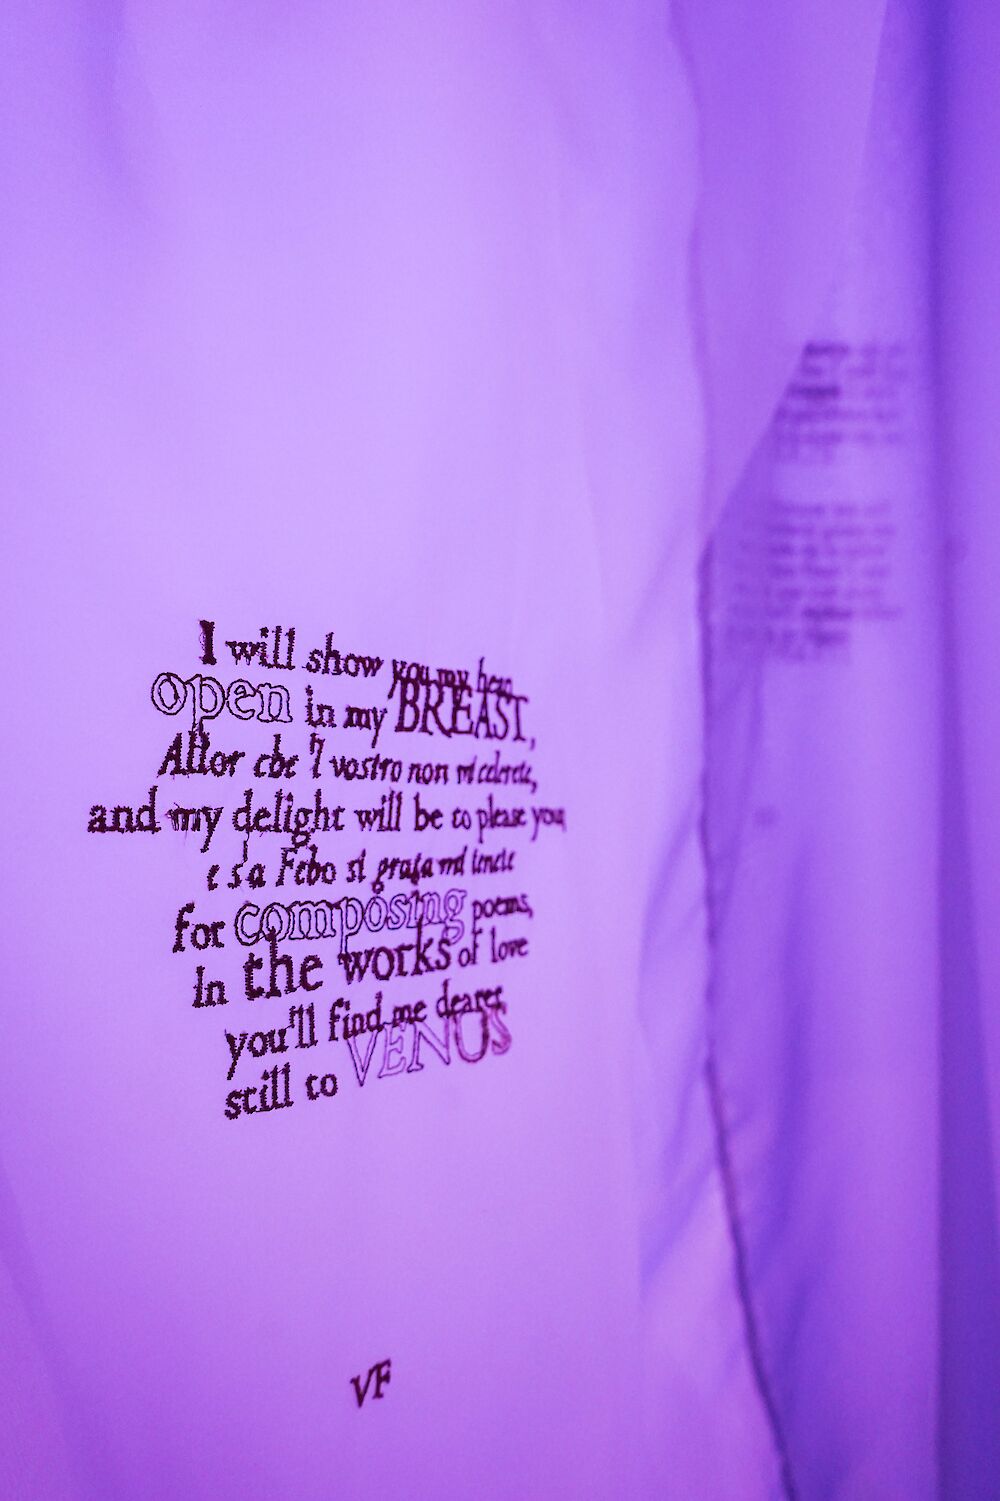 I will show you my hear
open in my BREAST,
Allor che 'l vostro non mi celerete,
and my delight will be to please you,
e s'a Febo sì grata mi tenete
for composing poems,
In the works of love
you'll find me dearer
still to VENUS
VF